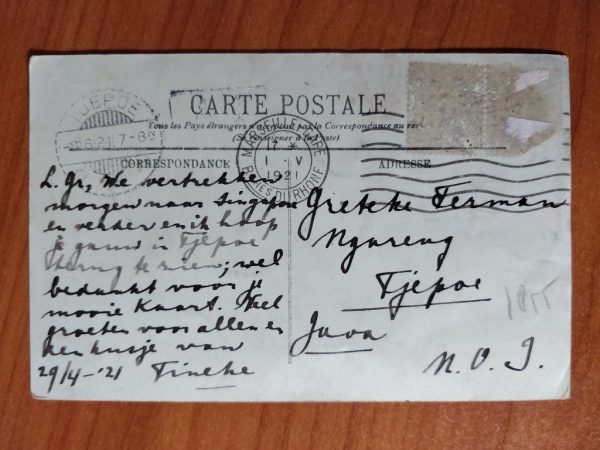 TJEPOE
6.21.7-8
CARTE POSTALE
Tous les Pays étrangers n'acceptent pas la Correspondance au
(Se renseigner à la Poste)
MARSEILLE GARE
17 *
1 - V
1921
BCHES DU RHONE
CORRESPONDANCE
ADRESSE
L. Gr, We vertrekken
morgen naar Singapore
en verder en ik hoop
je gauw in Tjepoe
terug te zien; wel
bedankt voor je
mooie kaart. Veel
groeten voor allen en
een kusje van
29/4-'21 Tineke
Greteke Terman
Ngareng
Tjepoe
Java
N.O.I.